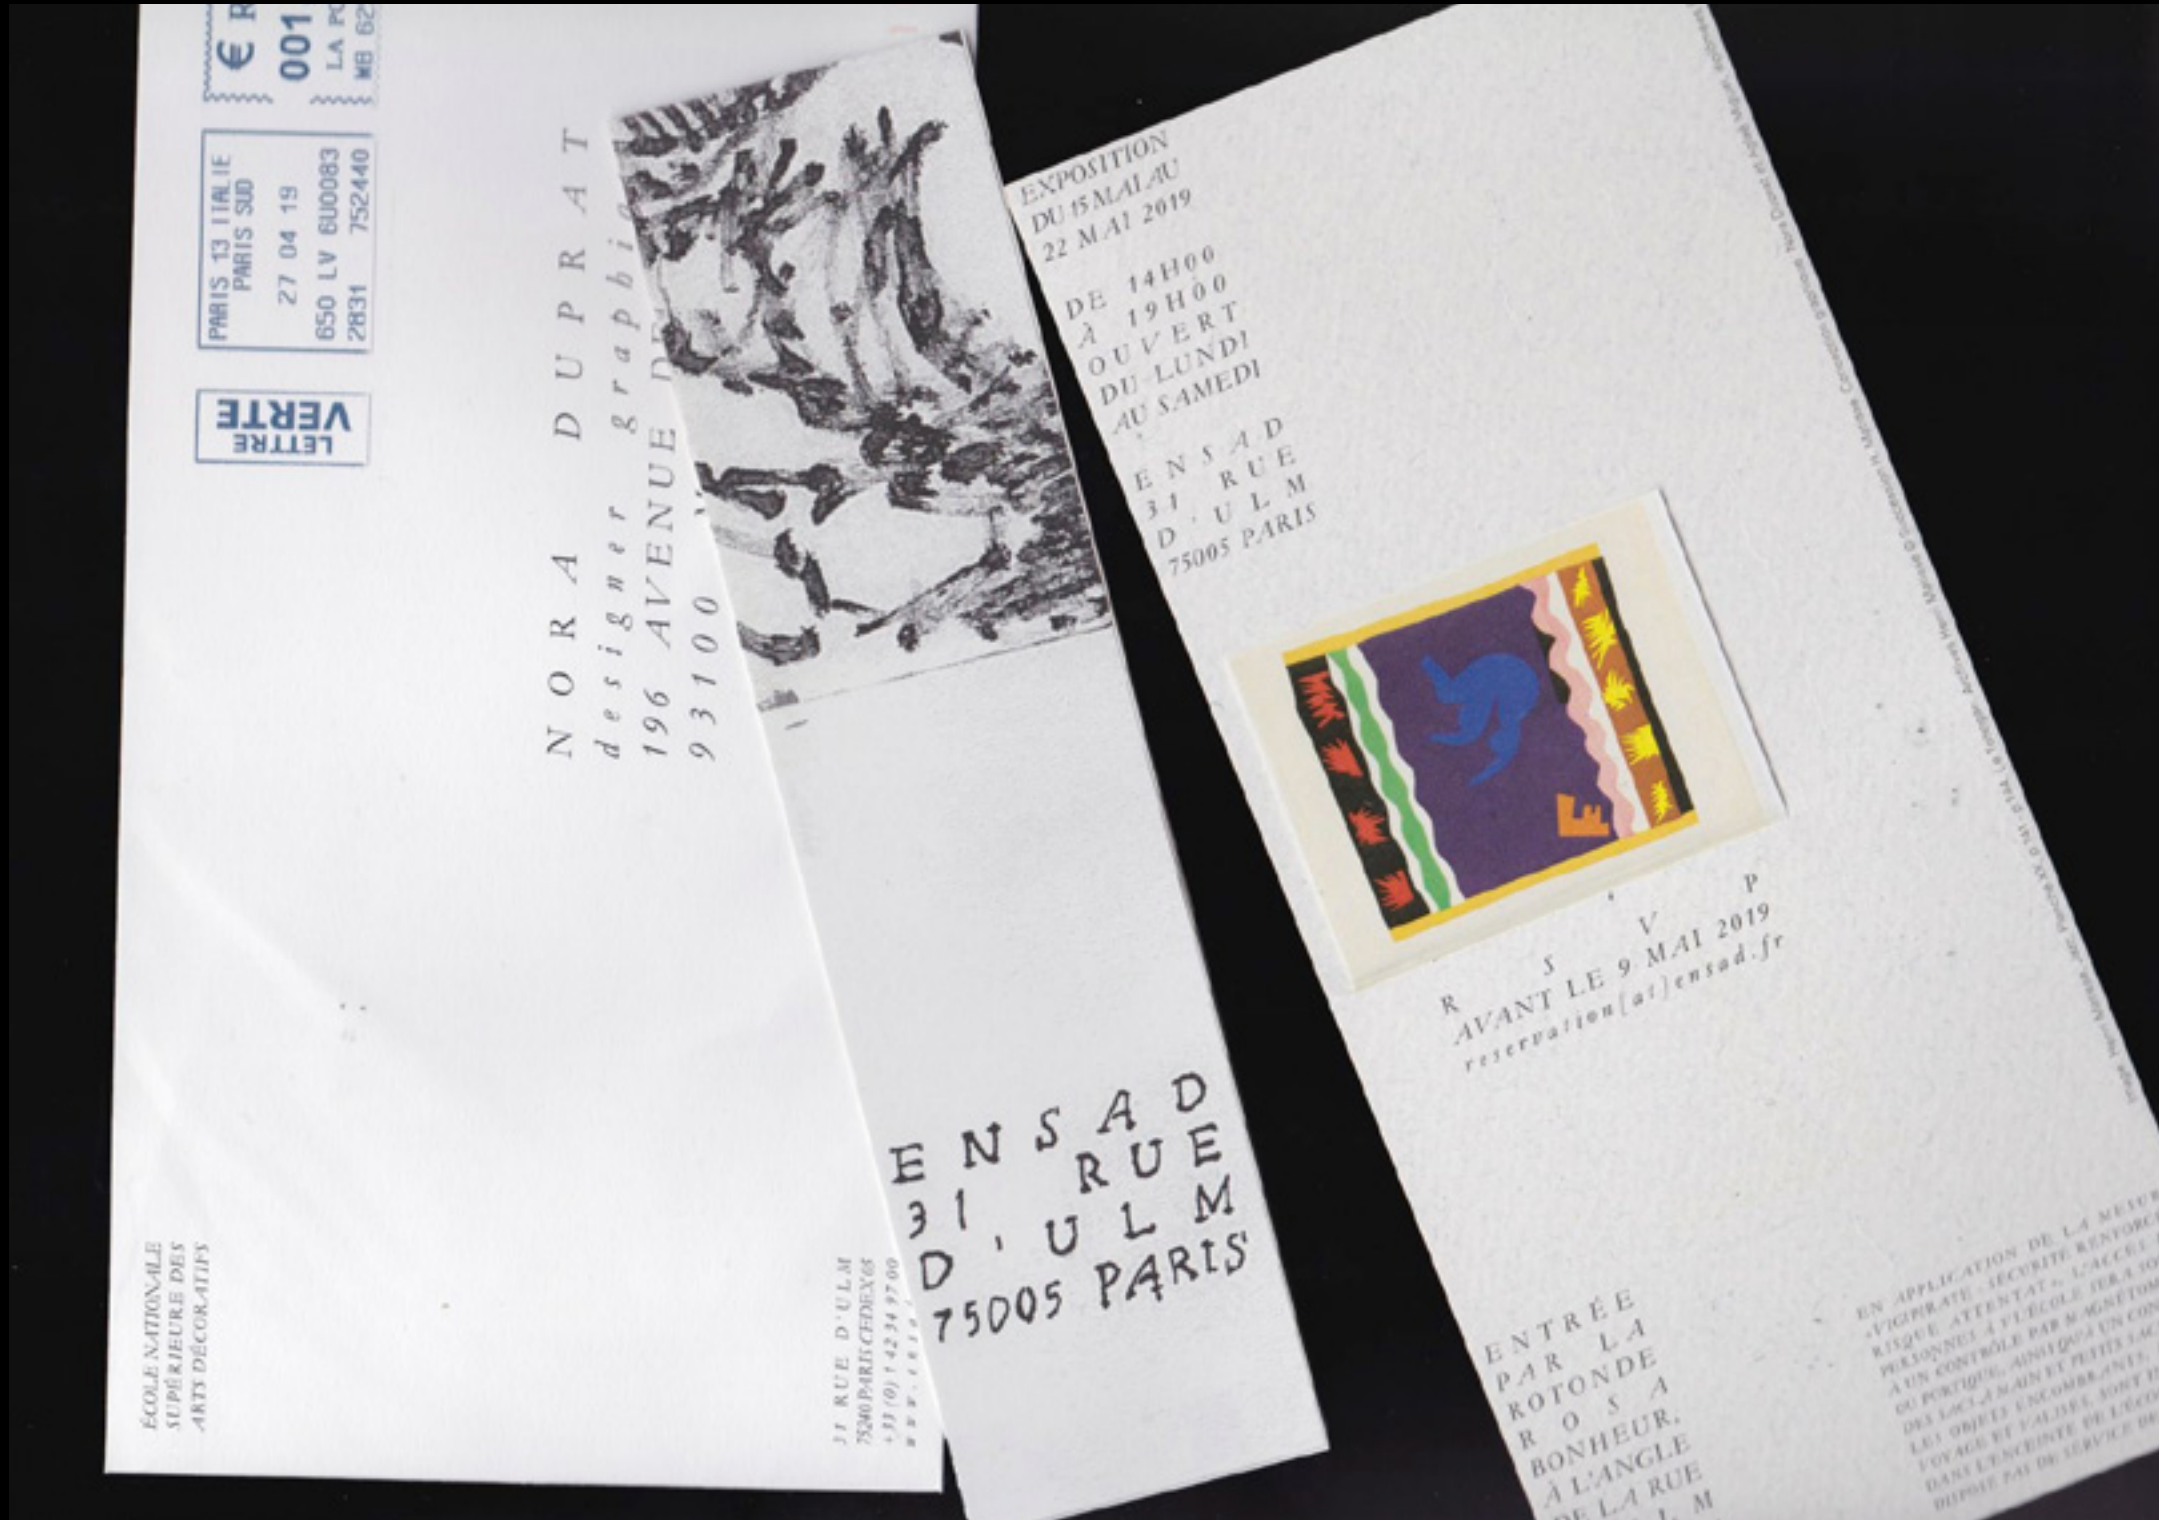 € R
001
LA PO
WB 62
PARIS 13 ITALIE
PARIS SUD
27 04 19
650 LV 6U0083
2831 752440
LETTRE
VERTE
NORA DUPRAT
designer graphi
196 AVENUE DE
93100
ÉCOLE NATIONALE
SUPÉRIEURE DES
ARTS DÉCORATIFS
31 RUE D'ULM
75240 PARIS CEDEX 05
+33 (0) 1 42 34 97 00
ENSAD
31 RUE
D'ULM
75005 PARIS
EXPOSITION
DU 15 MAI AU
22 MAI 2019
DE 14H00
À 19H00
OUVERT
DU LUNDI
AU SAMEDI
ENSAD
31 RUE
D'ULM
75005 PARIS
RSVP
AVANT LE 9 MAI 2019
reservation[at]ensad.fr
ENTRÉE
PAR LA
ROTONDE
ROSA
BONHEUR,
À L'ANGLE
DE LA RUE
L M
EN APPLICATION DE LA MESUR
«VIGIPIRATE - SÉCURITÉ RENFORC
RISQUE ATTENTAT», L'ACCÈS
PERSONNES À L'ÉCOLE SERA SO
À UN CONTRÔLE PAR MAGNÉTOM
OU PORTIQUE, AINSI QU'À UN CON
DES SACS À MAIN ET PETITS SAC
LES OBJETS ENCOMBRANTS,
VOYAGE ET VALISES, SONT I
DANS L'ENCEINTE DE L'ÉCO
DISPOSE PAS DE SERVICE DE